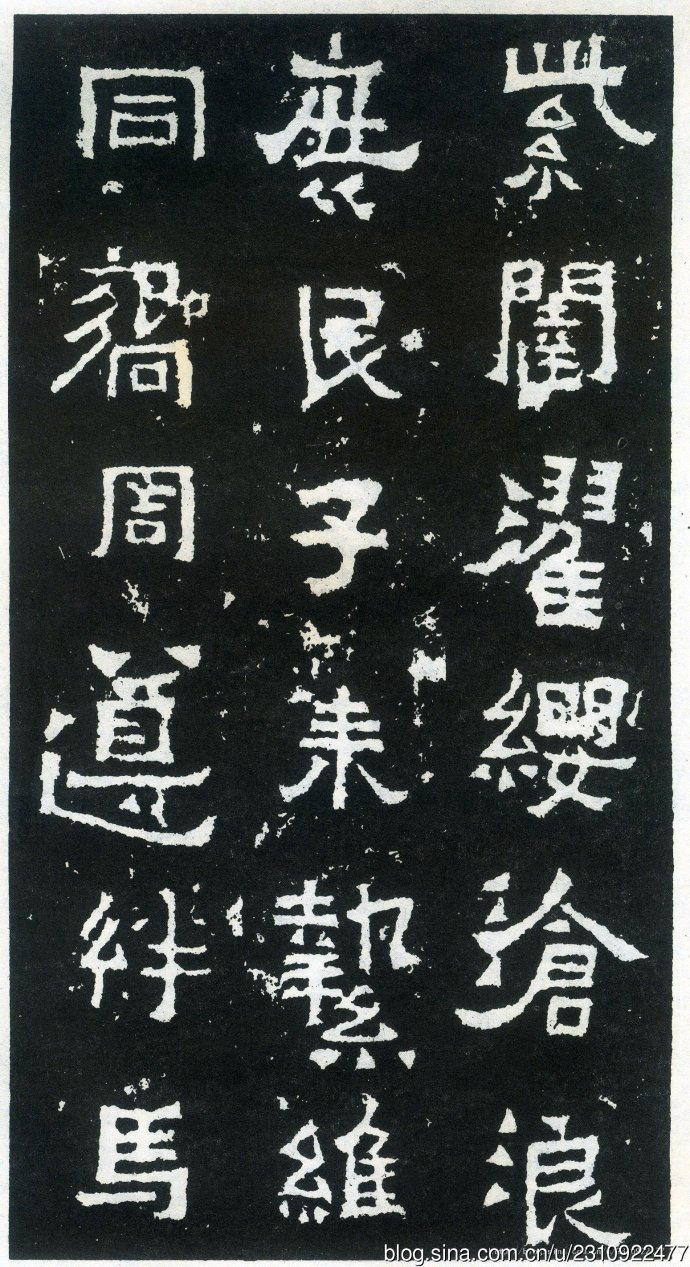 紫闥濯纓滄浪
庶民子来縶維
同嚮周遵絆馬
blog.sina.com.cn/u/2310922477